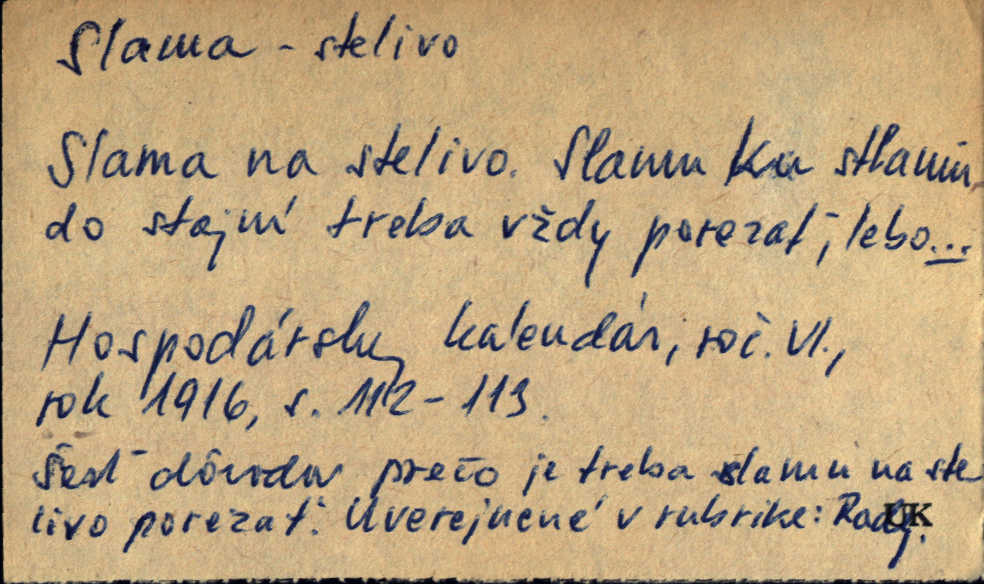 Slama - stelivo
Slama na stelivo. Slamu ku stlaniu
do stajní treba vždy porezať, lebo...
Hospodársky kalendár, roč. VI.,
rok 1916, s. 112-113.
Šesť dôvodov prečo je treba slamu na ste
livo porezať. Uverejnené v rubrike: Rady.
UK